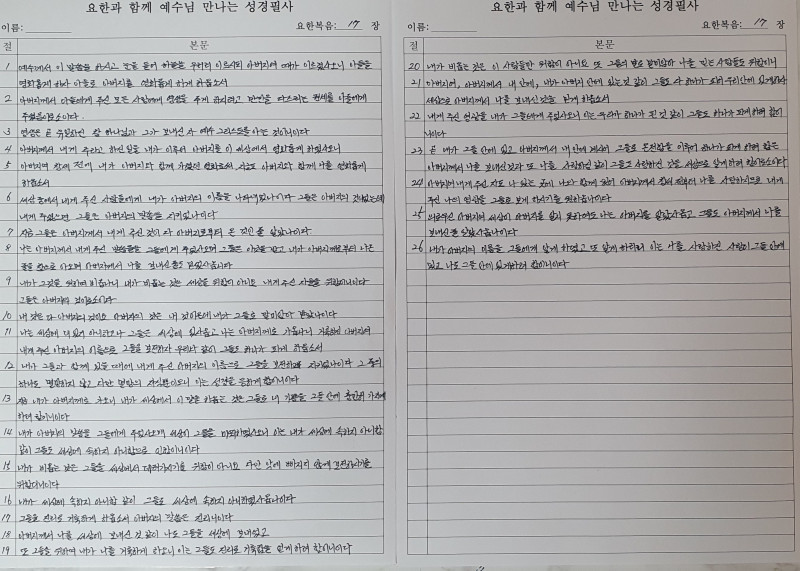 요한과 함께 예수님 만나는 성경필사
이름:
요한복음: 17 장
절 본문
1 예수께서 이 말씀을 하시고 눈을 들어 하늘을 우러러 이르시되 아버지여 때가 이르렀사오니 아들을
영화롭게 하사 아들로 아버지를 영화롭게 하게 하옵소서
2 아버지께서 아들에게 주신 모든 사람에게 영생을 주게 하시려고 만민을 다스리는 권세를 아들에게
주셨음이로소이다.
3 영생은 곧 유일하신 참 하나님과 그가 보내신 자 예수 그리스도를 아는 것이니이다
4 아버지께서 내게 하라고 주신 일을 내가 이루어 아버지를 이 세상에서 영화롭게 하였사오니
5 아버지여 창세 전에 내가 아버지와 함께 가졌던 영화로써 지금도 아버지와 함께 나를 영화롭게
하옵소서
6 세상 중에서 내게 주신 사람들에게 내가 아버지의 이름을 나타내었나이다 그들은 아버지의 것이었는데
내게 주셨으며 그들은 아버지의 말씀을 지키었나이다
7 지금 그들은 아버지께서 내게 주신 것이 다 아버지로부터 온 것인 줄 알았나이다
8 나는 아버지께서 내게 주신 말씀들을 그들에게 주었사오며 그들은 이것을 받고 내가 아버지께로부터 나온
줄을 참으로 아오며 아버지께서 나를 보내신 줄도 믿었사옵나이다
9 내가 그들을 위하여 비옵나니 내가 비옵는 것은 세상을 위함이 아니요 내게 주신 자들을 위함이니이다
그들은 아버지의 것이로소이다
10 내 것은 다 아버지의 것이요 아버지의 것은 내 것이온데 내가 그들로 말미암아 영광을 받았나이다
11 나는 세상에 더 있지 아니하오나 그들은 세상에 있사옵고 나는 아버지께로 가옵나니 거룩하신 아버지여
내게 주신 아버지의 이름으로 그들을 보전하사 우리와 같이 그들도 하나가 되게 하옵소서
12 내가 그들과 함께 있을 때에 내게 주신 아버지의 이름으로 그들을 보전하고 지키었나이다 그 중의
하나도 멸망하지 않고 다만 멸망의 자식뿐이오니 이는 성경을 응하게 함이니이다
13 지금 내가 아버지께로 가오니 내가 세상에서 이 말을 하옵는 것은 그들로 내 기쁨을 그들 안에 충만히 가지게
하려 함이니이다
14 내가 아버지의 말씀을 그들에게 주었사오매 세상이 그들을 미워하였사오니 이는 내가 세상에 속하지 아니함
같이 그들도 세상에 속하지 아니함으로 인함이니이다
15 내가 비옵는 것은 그들을 세상에서 데려가시기를 위함이 아니요 다만 악에 빠지지 않게 보전하시기를
위함이니이다
16 내가 세상에 속하지 아니함 같이 그들도 세상에 속하지 아니하였사옵나이다
17 그들을 진리로 거룩하게 하옵소서 아버지의 말씀은 진리니이다
18 아버지께서 나를 세상에 보내신 것 같이 나도 그들을 세상에 보내었고
19 또 그들을 위하여 내가 나를 거룩하게 하오니 이는 그들도 진리로 거룩함을 얻게 하려 함이니이다
요한과 함께 예수님 만나는 성경필사
이름:
요한복음: 17 장
절 본문
20 내가 비옵는 것은 이 사람들만 위함이 아니요 또 그들의 말로 말미암아 나를 믿는 사람들도 위함이니
21 아버지여, 아버지께서 내 안에, 내가 아버지 안에 있는 것 같이 그들도 다 하나가 되어 우리 안에 있게 하사
세상으로 아버지께서 나를 보내신 것을 믿게 하옵소서
22 내게 주신 영광을 내가 그들에게 주었사오니 이는 우리가 하나가 된 것 같이 그들도 하나가 되게 하려 함이
니이다
23 곧 내가 그들 안에 있고 아버지께서 내 안에 계시어 그들로 온전함을 이루어 하나가 되게 하려 함은
아버지께서 나를 보내신 것과 또 나를 사랑하심 같이 그들도 사랑하신 것을 세상으로 알게 하려 함이로소이다
24 아버지여 내게 주신 자도 나 있는 곳에 나와 함께 있어 아버지께서 창세 전부터 나를 사랑하시므로 내게
주신 나의 영광을 그들로 보게 하시기를 원하옵나이다
25 의로우신 아버지여 세상이 아버지를 알지 못하여도 나는 아버지를 알았사옵고 그들도 아버지께서 나를
보내신 줄 알았사옵나이다
26 내가 아버지의 이름을 그들에게 알게 하였고 또 알게 하리니 이는 나를 사랑하신 사랑이 그들 안에
있고 나도 그들 안에 있게 하려 함이니이다